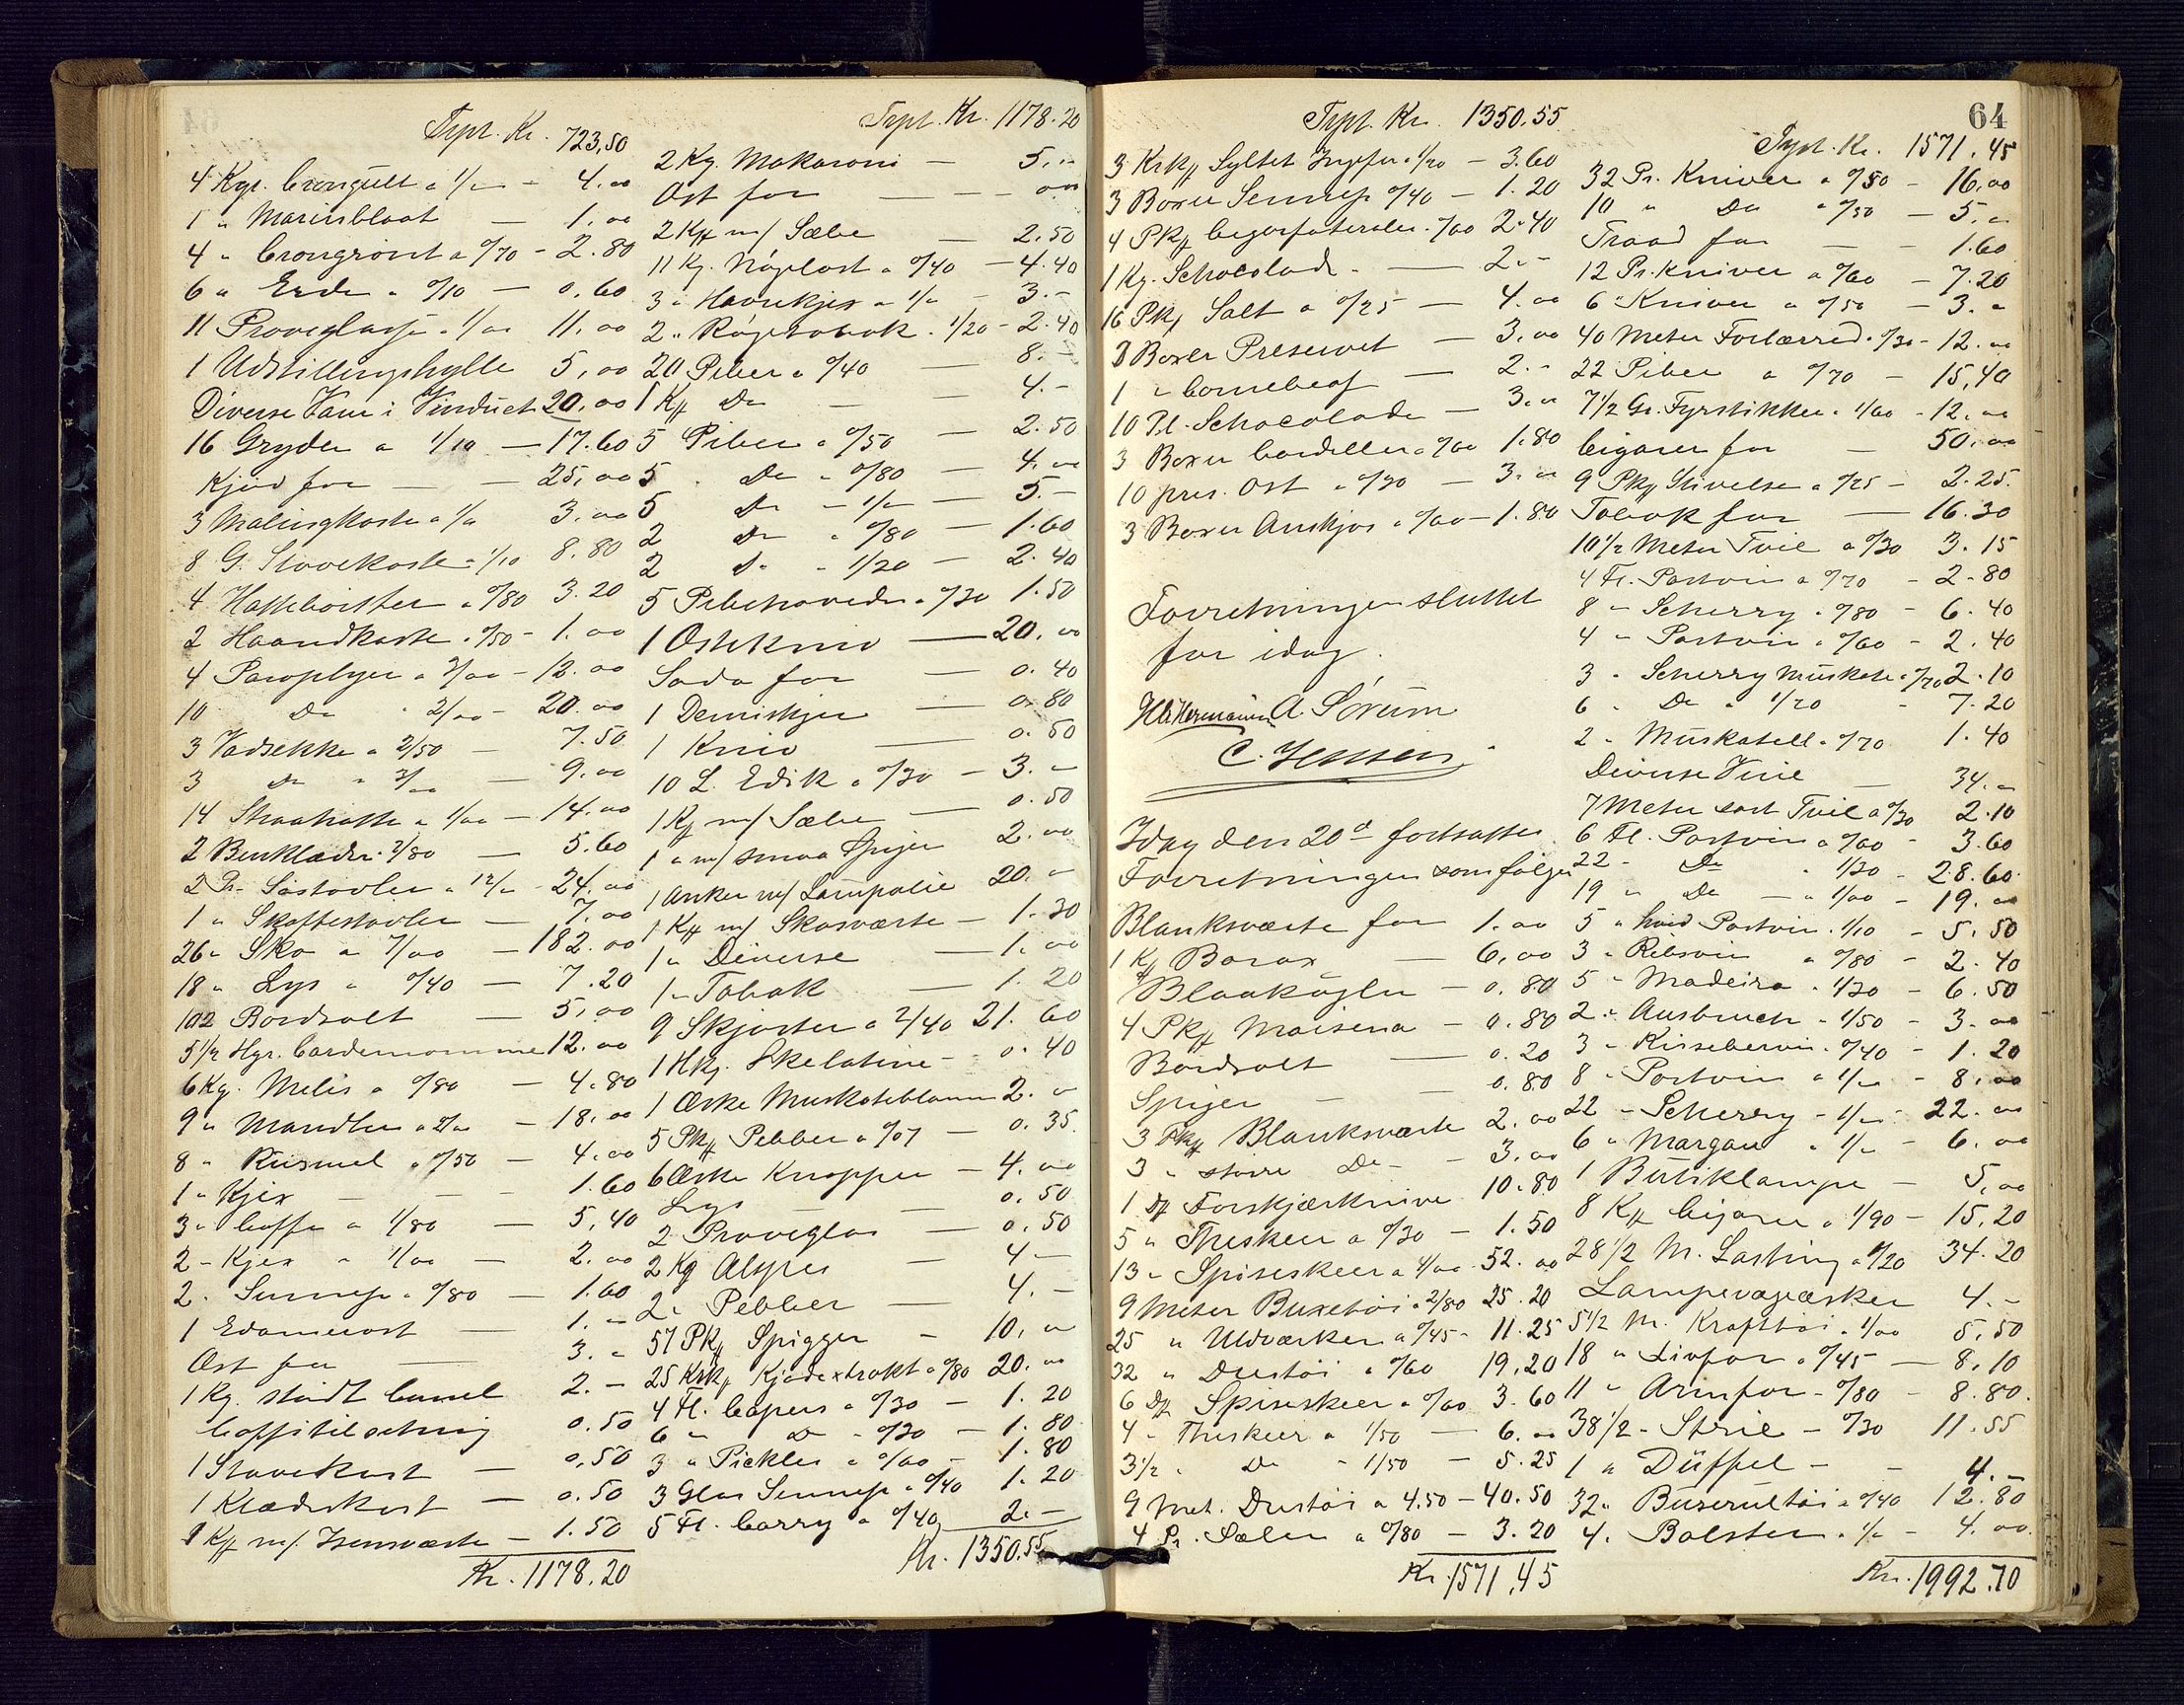 Trpt. Kr. 723,50
4 Kgr. Crongult a 1/" - 4.00
1 " Marinblaat — 1,00
4 " Crongrönt a 0/70 - 2.80
6 " Erde a 0/10 — 0,60
11 Prøveglasse a 1/00 11,00
1 Udstillingshylle 5,00
Diverse Varer i Vinduet 20,00
16 Gryder a 1/10 — 17.60
Kjød for — — 25,00
3 Malingkoste a 1/" 3,00
8 G. Stovekoste a 1/10 8.80
4 a 0/80 3.20
2 Haandkoste a 0/50 - 1.00
4 Paraplyer a 3/00 - 12.00
10 Do " 2/00 - 20.00
3 Vadsekke a 2/50 — 7.50
3 Do " 3/00 — 9.00
14 Straahatte a 1/00 — 14.00
2 Benklæder a 2/80 — 5.60
2 Pr. Søstøvler a 12/" - 24.00
1 " Skaftestøvler — 7,00
26 " Sko a 7/00 — 182.00
18 " Lys a 0/40 — 7.20
102 Bordsalt — 5,00
5 1/2 Hgr. Cardemomme 12.00
6 Kg. Melis a 0/80 — 4.80
9 " Mandler a 2/00 — 18.00
8 " a 0/50 — 4.00
1 " Kjex — — — 1.60
3 " Caffe a 1/80 — 5,40
2 " Kjex " 1/00 — 2.00
2 " Sennep a 0/80 — 1.60
1 Edamerost — 1. "
Ost for — 3. "
1 Kg. stødt Canel 2. —
Caffetilsetning 0.50
1 Stovekost — 0,50
1 Klædeskost — 0.50
1 Kff m/ Isensværte — 1.50
Kr. 1178.20
Trpt. Kr. 1178.20
2 Kg. Makaroni — 5. "
Ost for — —
2 Kff m/ Sæbe — 2.50
11 Kg. Nøgleost a 0/40 — 4.40
3 " Havrekjex a 1/" - 3. —
2 " Røgetobak a 1/20 - 2.40
20 Piber a 0/40 — 8. —
1 Kff Do — — 4. —
5 Piber a 0/50 — 2.50
5 " Do " 0/80 — 4.00
5 Do — 1/" — 5. —
2 Do " 0/80 — 1.60
2 Do " 1/20 — 2.40
5 Pibehoveder a 0/30 1.50
1 Ostekniv — 20.00
Soda for — 0.40
1 — 0.80
1 Kniv — 0.50
10 L. Edik a 0/30 — 3. —
1 Kg m/ Sæbe — 0.50
1 " m/ smaa Spiger 2.00
1 Anker m/ Lampolie 20. —
1 Kff m/ Skosværte — 1.30
1 " Diverse — 1.00
1 " Tobak — 1.20
9 Skjorter a 2/40 21.60
1 Hkg. — 0.40
1 Æske Muskateblomme 2. "
5 Pkff Pebber a 0/07 — 0.35
6 Æske Knapper — 4.00
Lys — — 0.50
2 Prøveglas — 0.50
2 Kg — 4 —
2 " Pebber — 4. —
57 Pkff Spigger — 10, "
25 Krkff Kjødextrakt a 0/80 20.00
4 Fl. Capers a 0/30 — 1.20
6 " Do " 0/30 — 1.80
3 " Pickles a 0/60 — 1.80
3 Glas Sennep a 0/40 1.20
5 Fl. Carry a 0/40 2. —
Kr. 1350.55
Trpt. Kr. 1350.55
3 Krkff Syltet Ingefer a 1/20 — 3.60
3 Boxer Sennep 0/40 — 1.20
4 Pkff a 0/60 2.40
1 Kg. Schocolade — 2. —
16 Pkff Salt a 0/25 — 4.00
3 Boxer Preservet — 3.00
1 " Cornebeaf — 2. —
10 Pl. Schocolade — 3. "
3 Boxer a 0/60 1.80
10 pres. Ost a 0/30 — 3. "
3 Boxer Anskjos a 0/60 — 1.80
Forretningen sluttet
for idag.
A. Sørum
C. Jensen
Idag den 20d fortsattes
Forretningen som følger
Blanksværte for 1.00
1 Kff Borax — 6,00
Blaakugler — 0.80
4 Pkff Maisena — 0.80
Bordsalt — 0.20
Spiger — — 0.80
3 Pkff Blanksværte 2.00
3 " større Do — 3.00
1 Df Forskjærknive 10.80
5 " Theskeer a 0/30 — 1.50
13 " Spiseskeer a 4/00 52.00
9 Meter Buxetøi a 2/80 25.20
25 " Uldværken a 0/45 — 11.25
32 " a 0/60 19.20
6 Df Spiseskeer a 0/60 3.60
4 " Theskeer a 1/50 — 6.00
3 1/2 " Do " 1/50 — 5.25
9 Met. a 4.50 — 40.50
4 Pr. Sæler a 0/80 — 3.20
Kr. 1571,45
64
Trpt. Kr. 1571.45
32 Pr. Kniver a 0/50 — 16,00
10 " Do " 0/50 — 5. "
Traad for — — 1.60
12 Pr. Kniver a 0/60 — 7.20
6 " Kniver a 0/50 — 3. "
40 Meter Forlærred a 0/30 - 12.00
22 Piber a 0/70 — 15,40
7 1/2 Gr. Fyrstikker a 1/60 - 12.00
Cigarer for — 50.00
9 Pkff Stivelse a 0/25 — 2.25
Tobak for — 16.30
10 1/2 Meter Tvil a 0/30 3.15
4 Fl. Portvin a 0/70 — 2.80
8 " Scherry a 0/80 — 6.40
4 " Portvin a 0/60 — 2.40
3 " Scherry Muskatel a 0/70 2.10
6 " Do " 1/20 - 7.20
2 " Muskatell a 0/70 1.40
Diverse Vine — 34. "
7 Meter sort Tvil a 0/30 2.10
6 Fl. Portvin a 0/60 - 3.60
22 " Do " 1/30 — 28.60
19 " Do — " 1/00 — 19.00
5 " hvid Portvin a 1/10 — 5.50
3 " Ribsvin a 0/80 — 2.40
5 " Madeira a 1/30 — 6.50
2 " Ausbruch a 1/50 — 3.00
3 " Kirsebervin a 0/40 — 1.20
8 " Portvin a 1/" — 8.00
22 " Scherry — 1/" — 22.00
6 " Margaux " 1/" — 6.00
1 Butiklampe — 5,00
8 Kff Cigarer a 1/90 — 15,20
28 1/2 M. Lasting a 1/20 34.20
Lampevægeæsker 4. —
5 1/2 M. Krafttøi a 1/00 5.50
18 " Livfor a 0/45 — 8.10
11 " Armfor a 0/80 — 8.80
38 1/2 " Strie — 0/30 11.55
1 " Düffel — — 4. —
32 " Buserultøi a 0/40 12.80
4 " Bolster a 1/" — 4.00
Kr. 1992.70